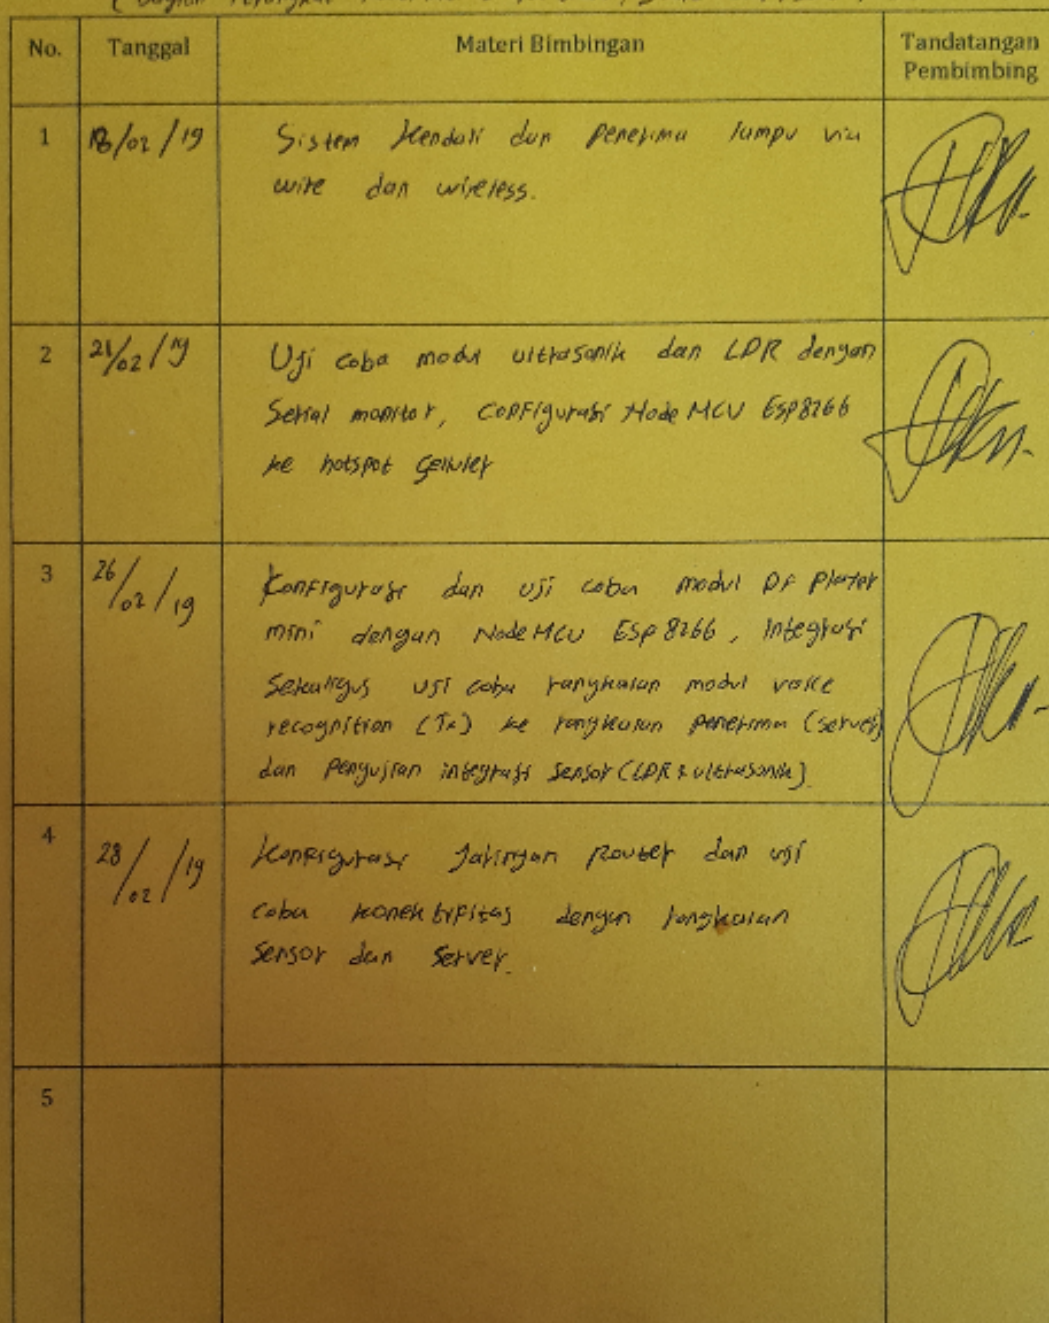 No. Tanggal Materi Bimbingan Tandatangan
Pembimbing
1 18/02/19 Sistem Kendali dan Penerima lampu via
wire dan wireless.
2 21/02/19 Uji coba modul ultrasonik dan LDR dengan
Serial monitor, Configurasi Node MCU Esp8266
ke hotspot Selluler
3 26/02/19 Konfigurasi dan uji coba modul DF Player
mini dengan Node MCU ESP 8266, Integrasi
Sekaligus uji coba rangkaian modul voice
recognition (Tx) ke rangkaian Penerima (server)
dan Pengujian integrasi Sensor (LDR & ultrasonik).
4 28/02/19 Konfigurasi Jaringan Router dan uji
coba konektifitas dengan rangkaian
Sensor dan Server.
5